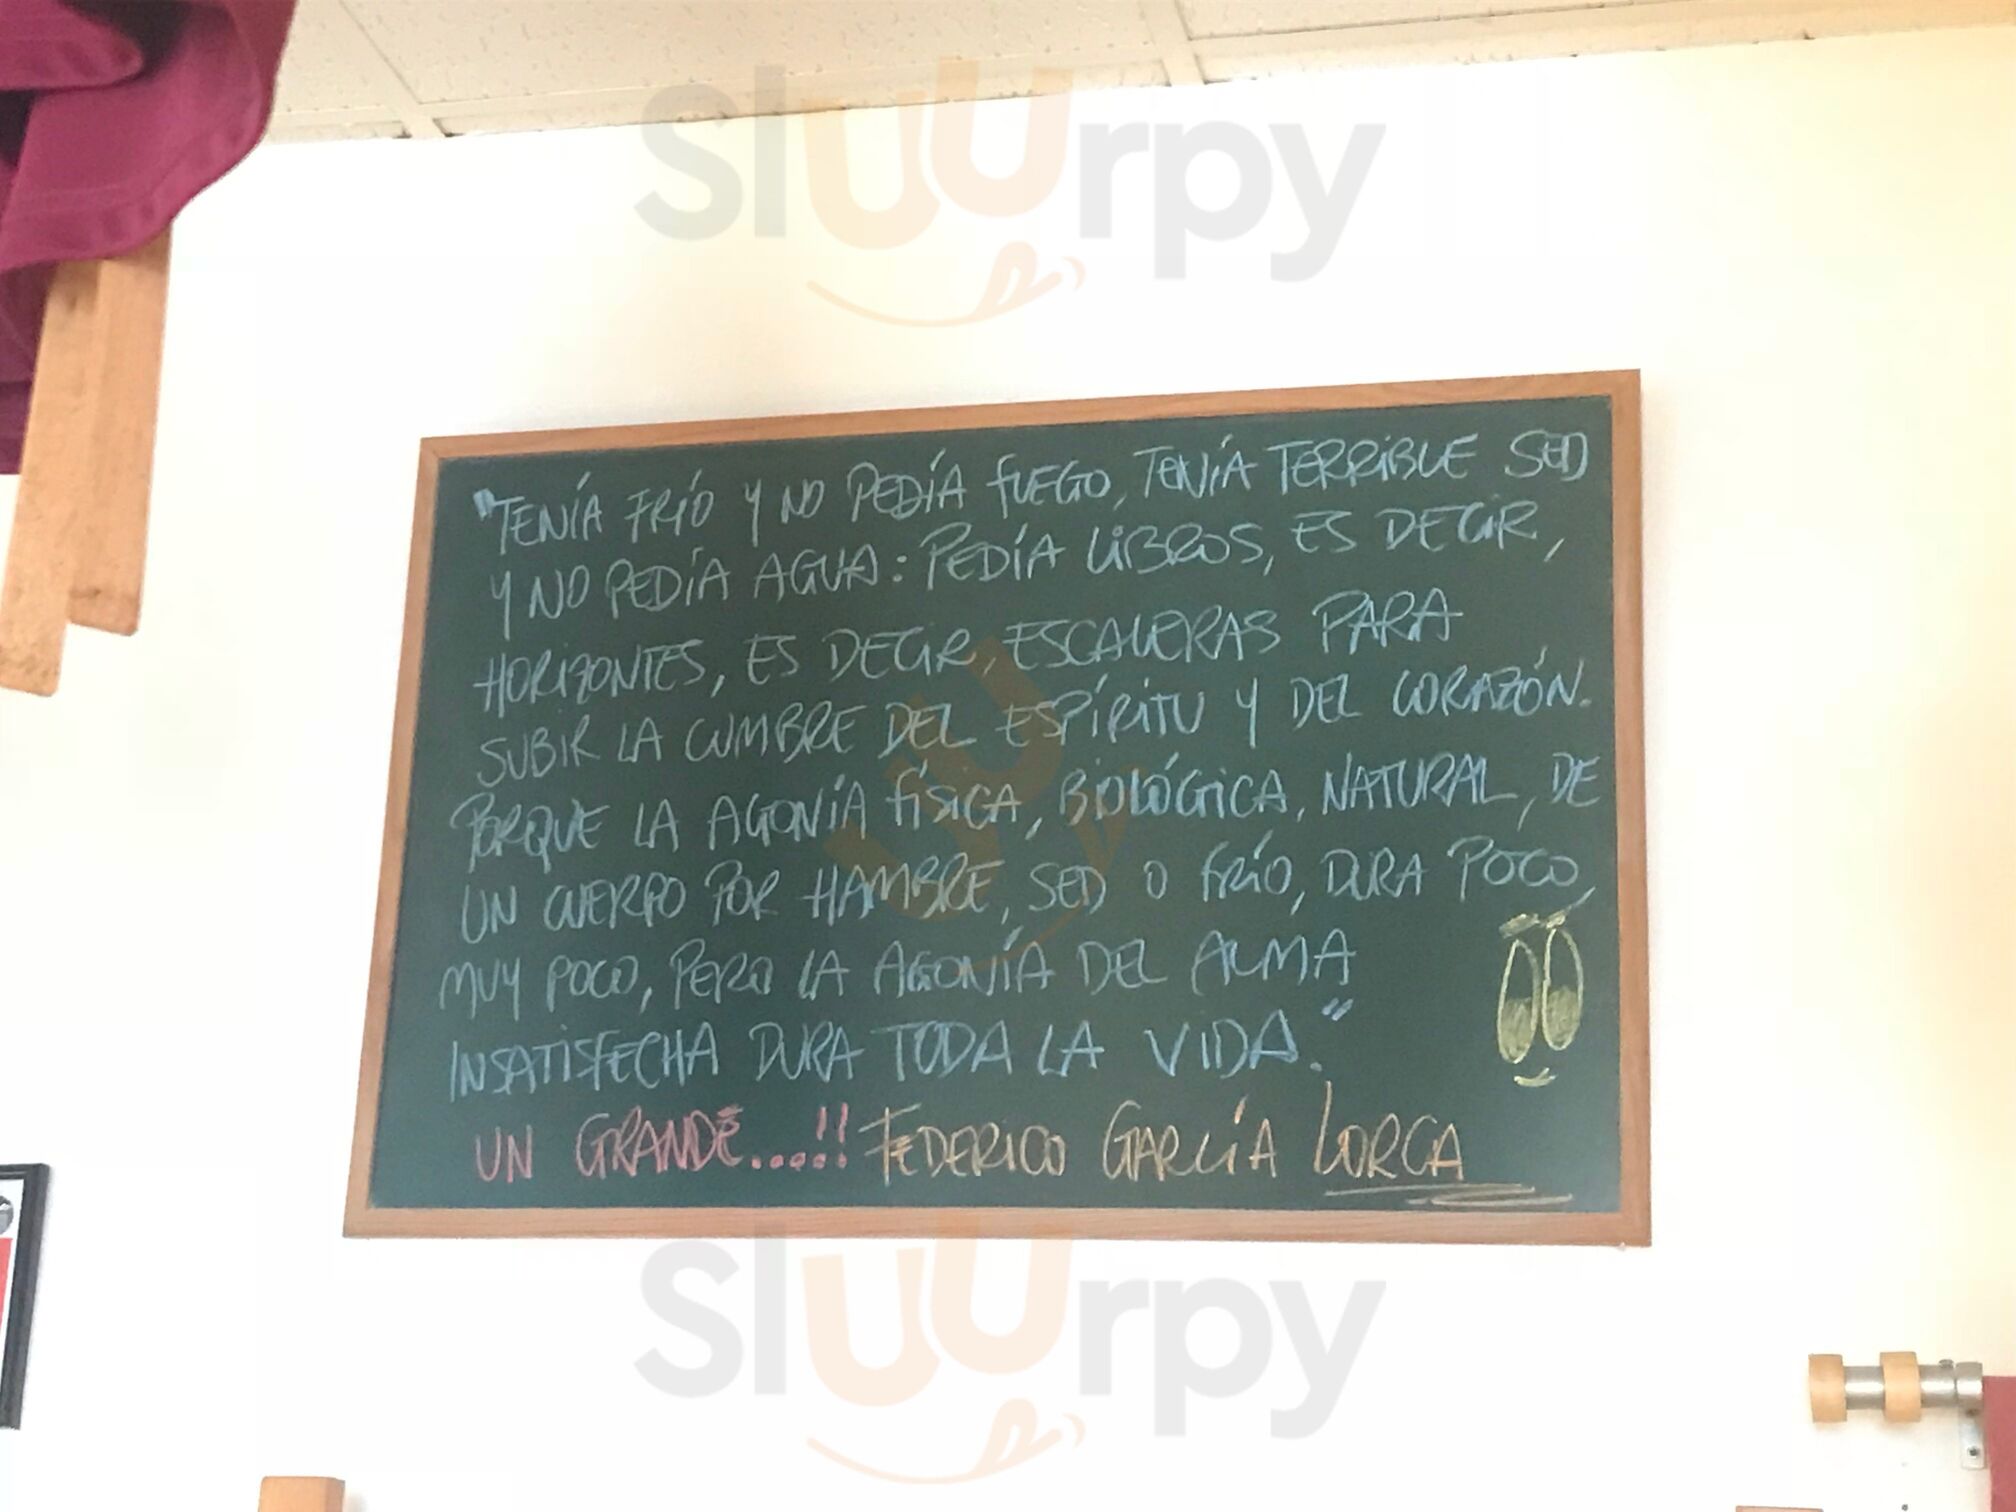 Sluurpy
"TENÍA FRÍO Y NO PEDÍA FUEGO, TENÍA TERRIBLE SED
Y NO PEDÍA AGUA: PEDÍA LIBROS, ES DECIR,
HORIZONTES, ES DECIR, ESCALERAS PARA
SUBIR LA CUMBRE DEL ESPÍRITU Y DEL CORAZÓN.
PORQUE LA AGONÍA FÍSICA, BIOLÓGICA, NATURAL, DE
UN CUERPO POR HAMBRE, SED O FRÍO, DURA POCO,
MUY POCO, PERO LA AGONÍA DEL ALMA
INSATISFECHA DURA TODA LA VIDA."
UN GRANDE.....!! FEDERICO GARCÍA LORCA
Sluurpy